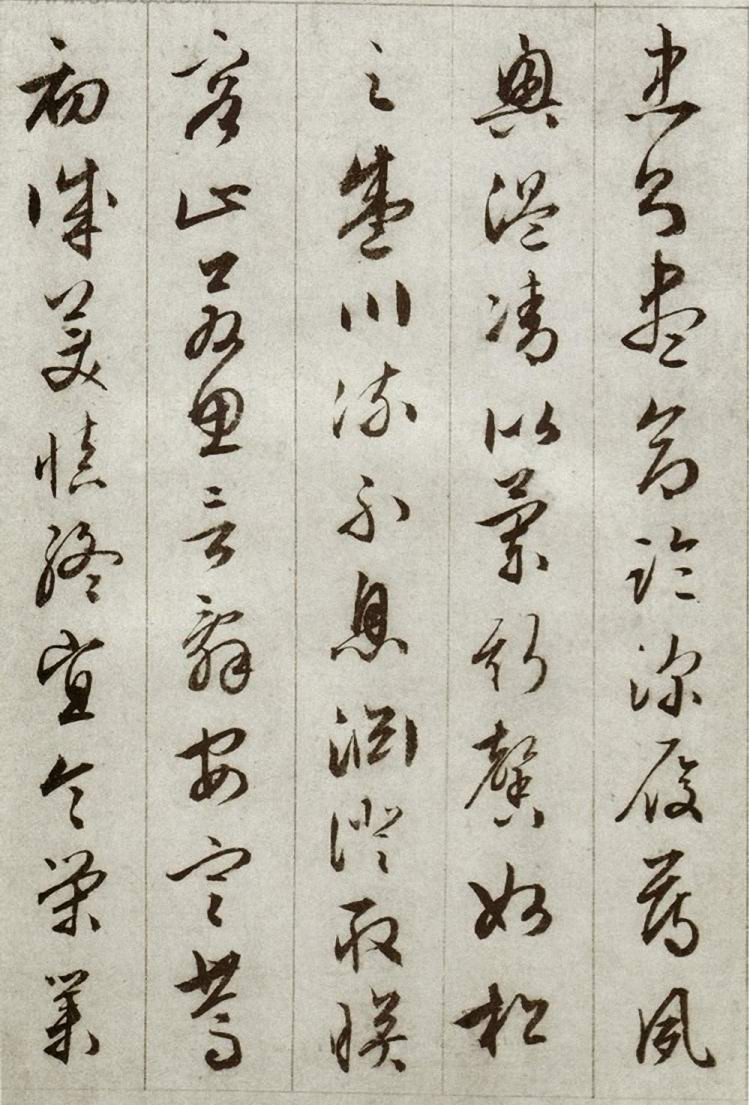 忠则盡命臨深履薄夙
興温凊以蘭斯馨如松
之盛川流不息淵澄取暎
容止若思言辭安定篤
初誠美慎終宜令榮業